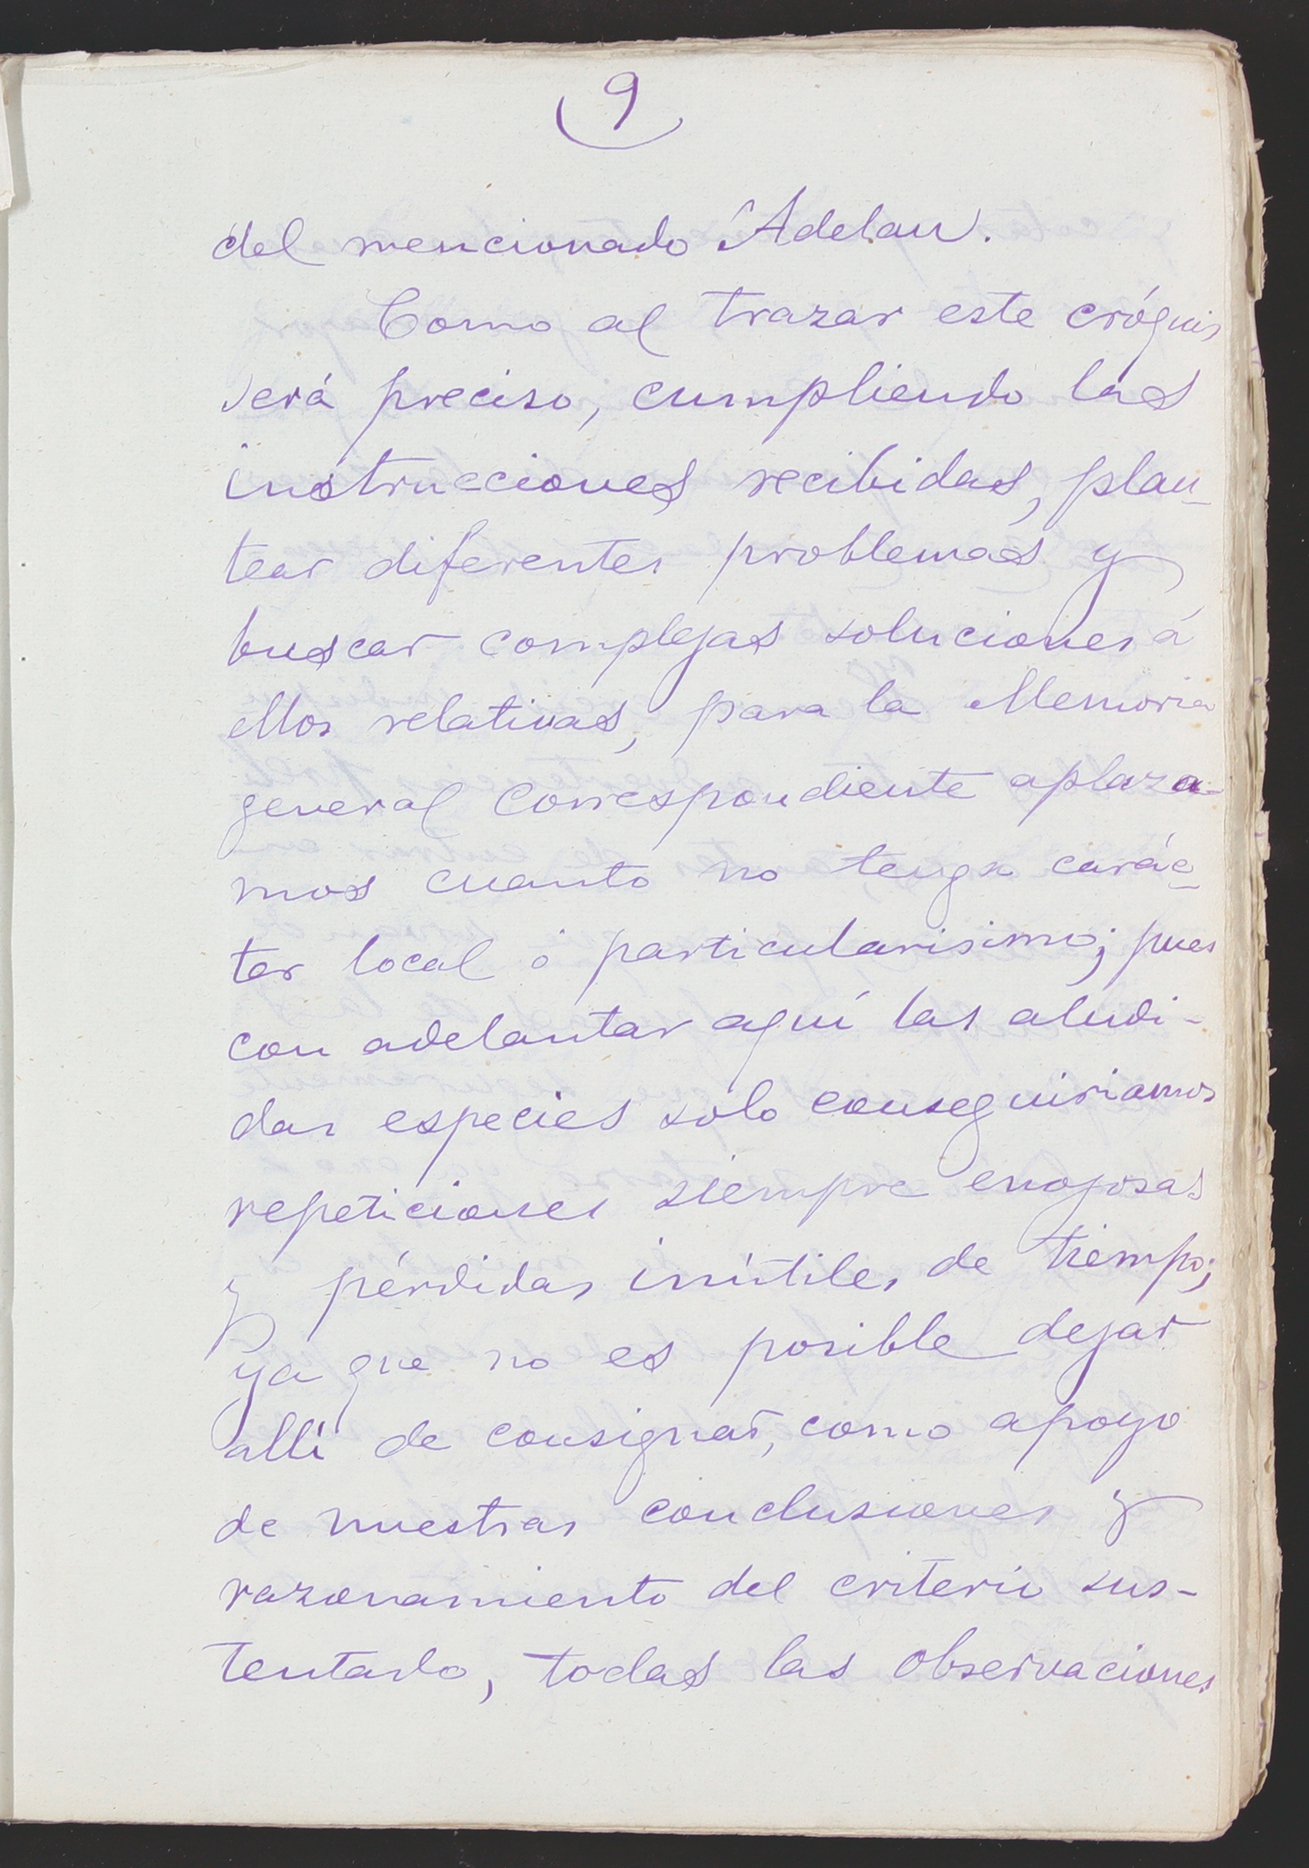 9
del mencionado Adelan.
Como al trazar este cróquis
será preciso, cumpliendo las
instrucciones recibidas, plan-
tear diferentes problemas y
buscar complejas soluciones á
ellos relativas, para la Memoria
general correspondiente aplaza-
mos cuanto no tenga carác-
ter local ó particularisimo; pues
con adelantar aquí las aludi-
das especies solo conseguiriamos
repeticiones siempre enojosas
y pérdidas inútiles de tiempo;
ya que no es posible dejar
alli de consignar, como apoyo
de nuestras conclusiones y
razonamiento del criterio sus-
tentado, todas las observaciones